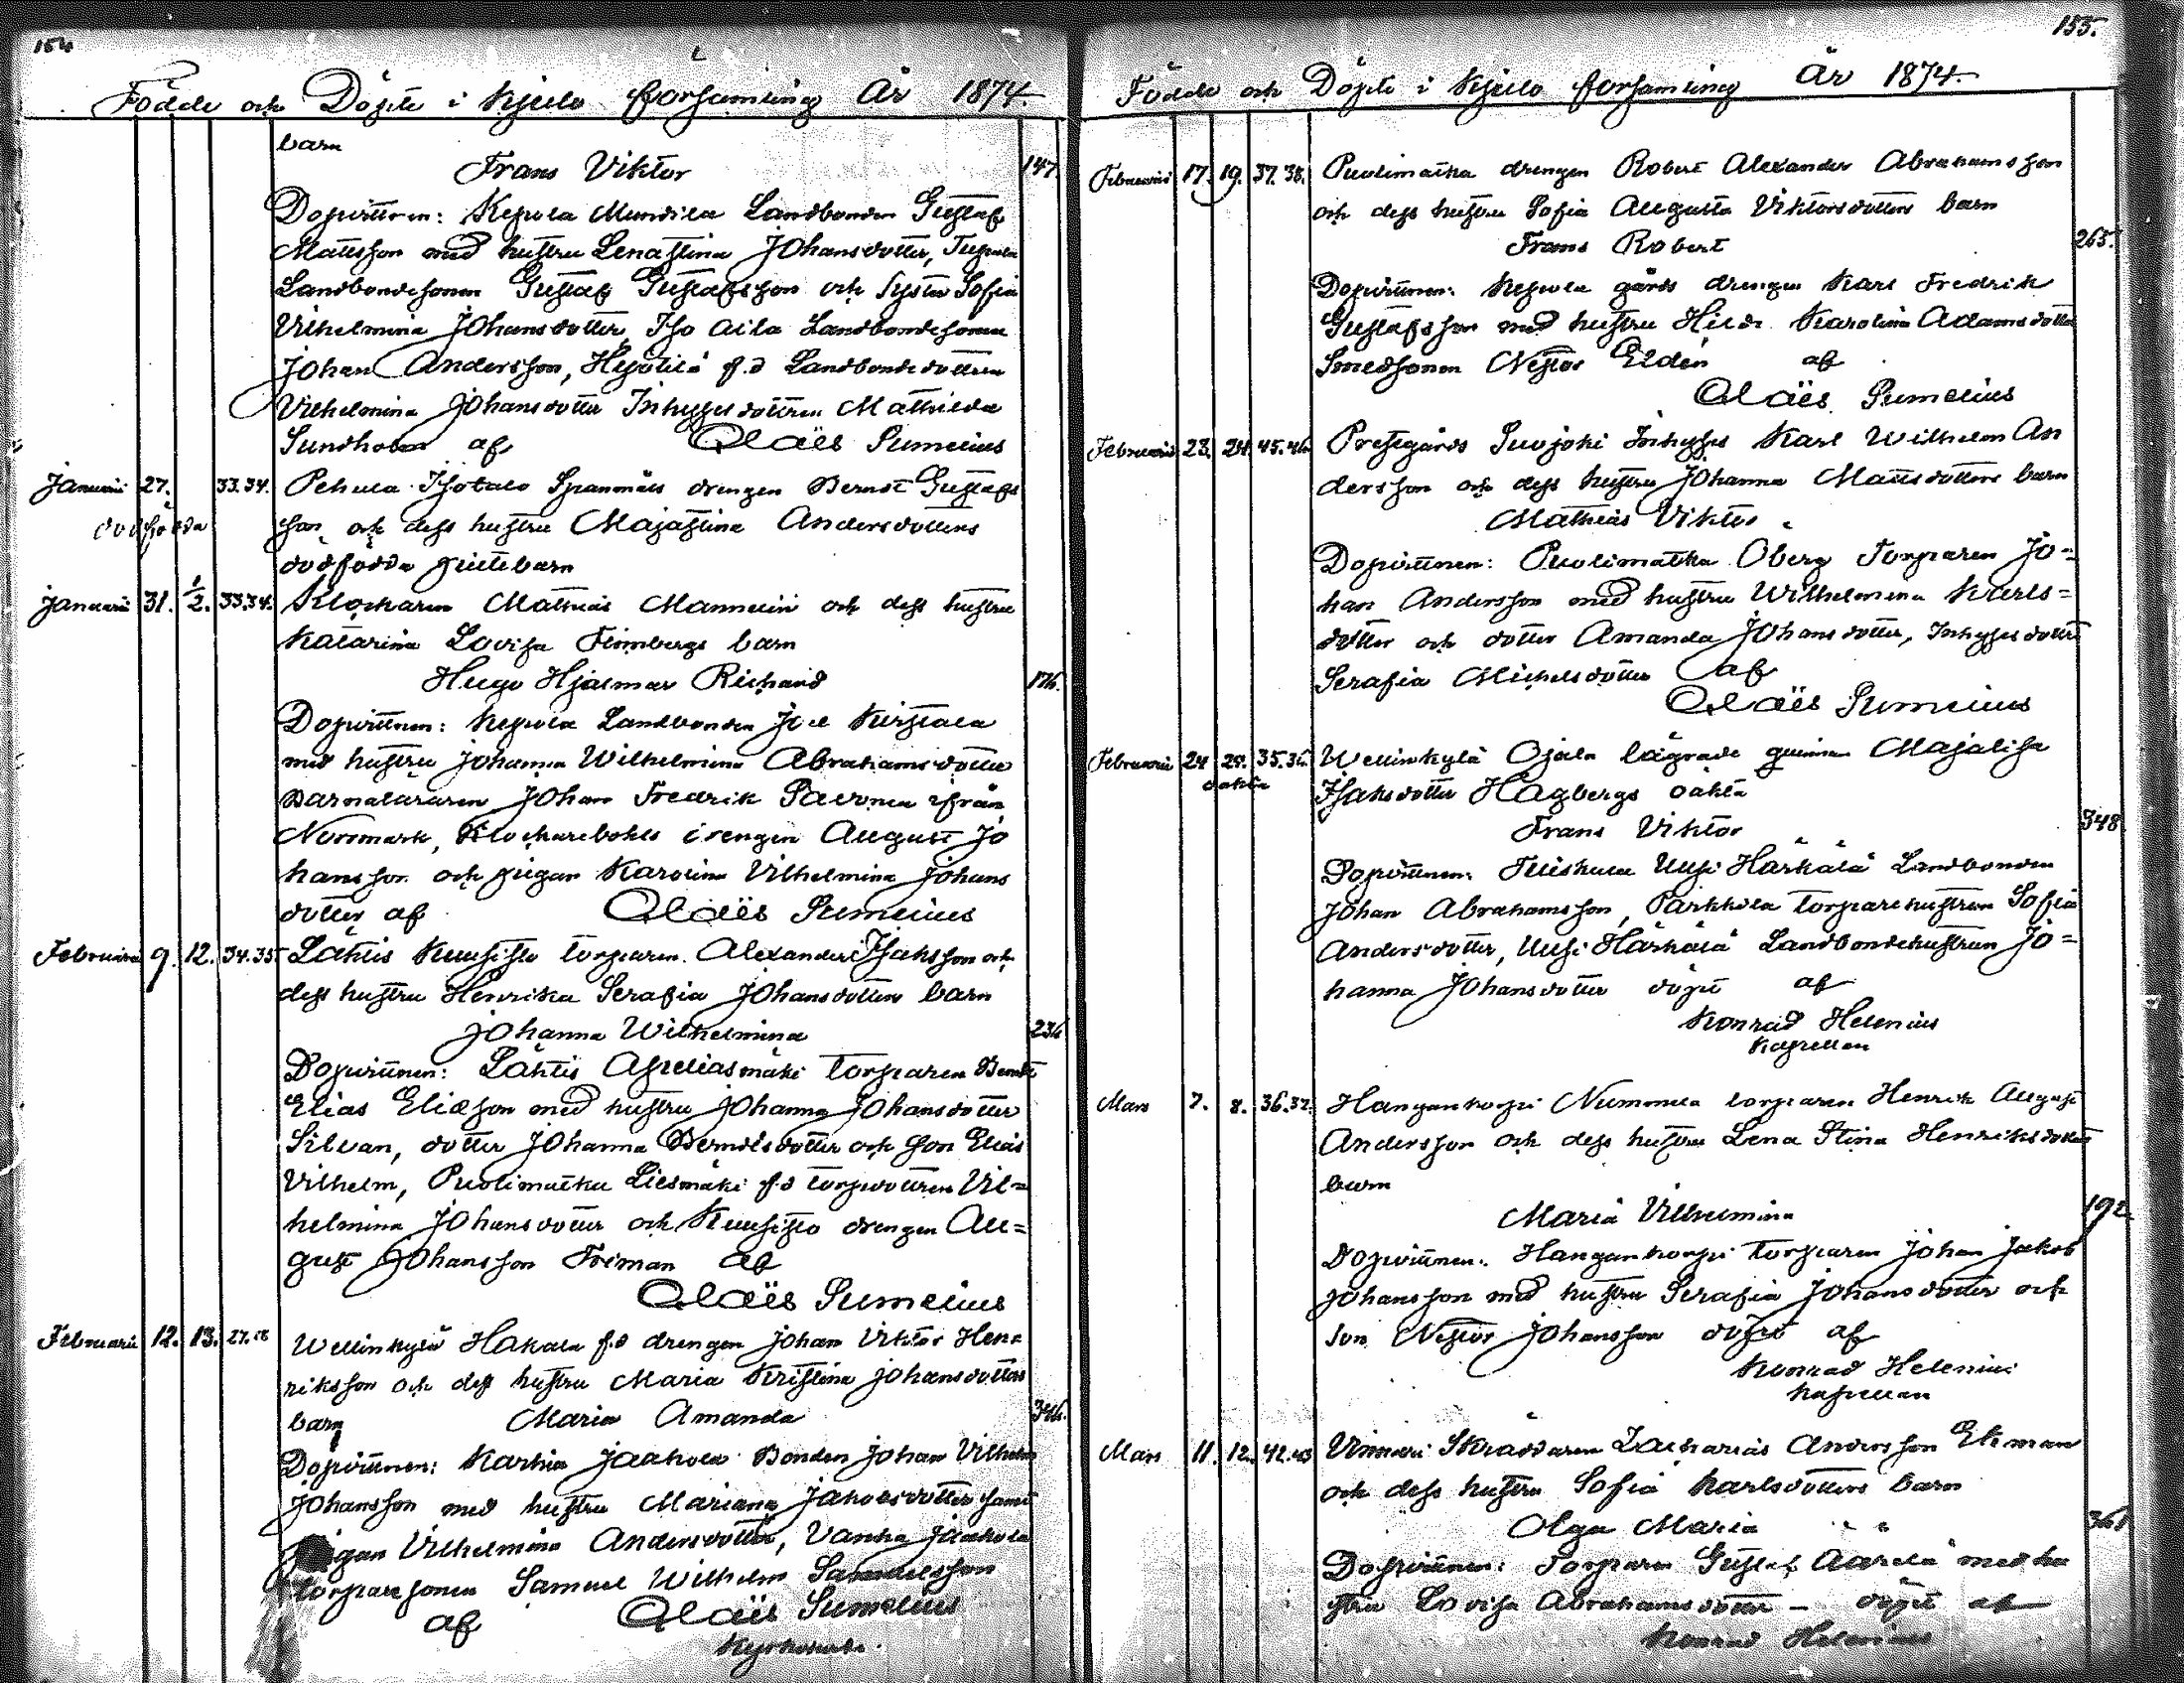 154
Födde och Döpte i Kjulo församling År 1874.
barn
Frans Viktor 147.
Dopvittnen: Kepola Mundila Landbonden Gustaf
Mattsson med hustru Lenastina Johansdotter,
Landbondesonen Gustaf Gustafsson och Syster Sofia
Vilhelmina Johansdotter, Iso Aila Landbondesonen
Johan Andersson, f.d Landbondedottren
Vilhelmina Johansdotter Inhysesdottren Mathilda
Sundholm af Claës Sumelius
Januarii 27. 33.34. Pehula Isotalo Spanmåls drengen Berndt Gustafs
dödfödda son och dess hustru Majastina Andersdotters
dödfödda gossebarn
Januarii 31. 1/2. 33.34. Klockaren Mathias Mannelin och dess hustru
Katarina Lovisa barn
Hugo Hjalmar Richard 176.
Dopvittnen: Kepola Landbonden Joel
med hustru Johanna Wilhelmina Abrahamsdotter
Barnaläraren Johan Fredrik ifrån
Norrmark, Klockarebohls drengen August Jo
hansson och pigan Karolina Vilhelmina Johans
dotter af Claës Sumelius
Februarii 9. 12. 34.35. Lähtis Kuusisto torparen Alexander Isaksson och
dess hustru Henrika Serafia Johansdotters barn
Johanna Wilhelmina 236
Dopvittnen: Lähtis torparen Berndt
Elias Eliasson med hustru Johanna Johansdotter
Silvan, dotter Johanna Berndtsdotter och son Elias
Vilhelm, Puolimatka Liesmäki f.d torpdottren Vil=
helmina Johansdotter och Kuusisto drengen Au=
gust Johansson Friman af
Claës Sumelius
Februarii 12. 13. 27.28 Wellinkylä Hakala f.d drengen Johan Viktor Hen=
riksson och dess hustru Maria Kristina Johansdotters
barn Maria Amanda 346.
Dopvittnen: Karhia Jaakola Bonden Johan Vilhelm
Johansson med hustru Mariana Jakobsdotter samt
pigan Vilhelmina Andersdotter, Vanha Jaakola
torparesonen Samuel Wilhelm Samuelsson
af Claës Sumelius
Kyrkoherde.
155.
Födde och Döpte i Kjulo församling År 1874.
Februarii 17. 19. 37.38. Puolimatka drengen Robert Alexander Abrahamsson
och dess hustru Sofia Augusta Viktorsdotters barn
Frans Robert 265.
Dopvittnen: Kepola gårds drengen Karl Fredrik
Gustafsson med hustru Hilda Karolina Adamsdotter
Smedsonen Nestor Elden af
Claës Sumelius
Februarii 23. 24. 45.46. Prestgårds Suojoki Inhyses Karl Wilhelm An
dersson och dess hustru Johanna Mattsdotters barn
Mathias Viktor
Dopvittnen: Puolimatka Oberg Torparen Jo=
han Andersson med hustru Wilhelmina Karls=
dotter och dotter Amanda Johansdotter, Inhysesdotter
Serafia Michelsdotter af
Claës Sumelius
Februarii 24 25. 35.36. Wellinkylä Ojala lägrade quinnan Majalisa
oäkta Isaksdotter Hagbergs oäkta
Frans Viktor 348
Dopvittnen: Tuiskula Uusi Härkälä Landbonden
Johan Abrahamsson, Pärkkola torparehustrun Sofia
Andersdotter, Uusi Härkälä Landbondehustrun Jo=
hanna Johansdotter döpt af
Konrad Helenius
Kapellan
Mars 7. 8. 36.37. Hangankorpi Nummela torparen Henrik August
Andersson och dess hustru Lena Stina Henriksdotters
barn
Maria Vilhelmina 192.
Dopvittnen: Hangankorpi torparen Johan Jakob
Johansson med hustru Serafia Johansdotter och
son Nestor Johansson döpt af
Konrad Helenius
Kapellan
Mars 11. 12. 42.43 Vinnari Skräddaren Zacharias Andersson Ekman
och dess hustru Sofia Karlsdotters barn
Olga Maria 361
Dopvittnen: Torparen Gustaf Aarela med hu
stru Lovisa Abrahamsdotter – döpt af
Konrad Helenius